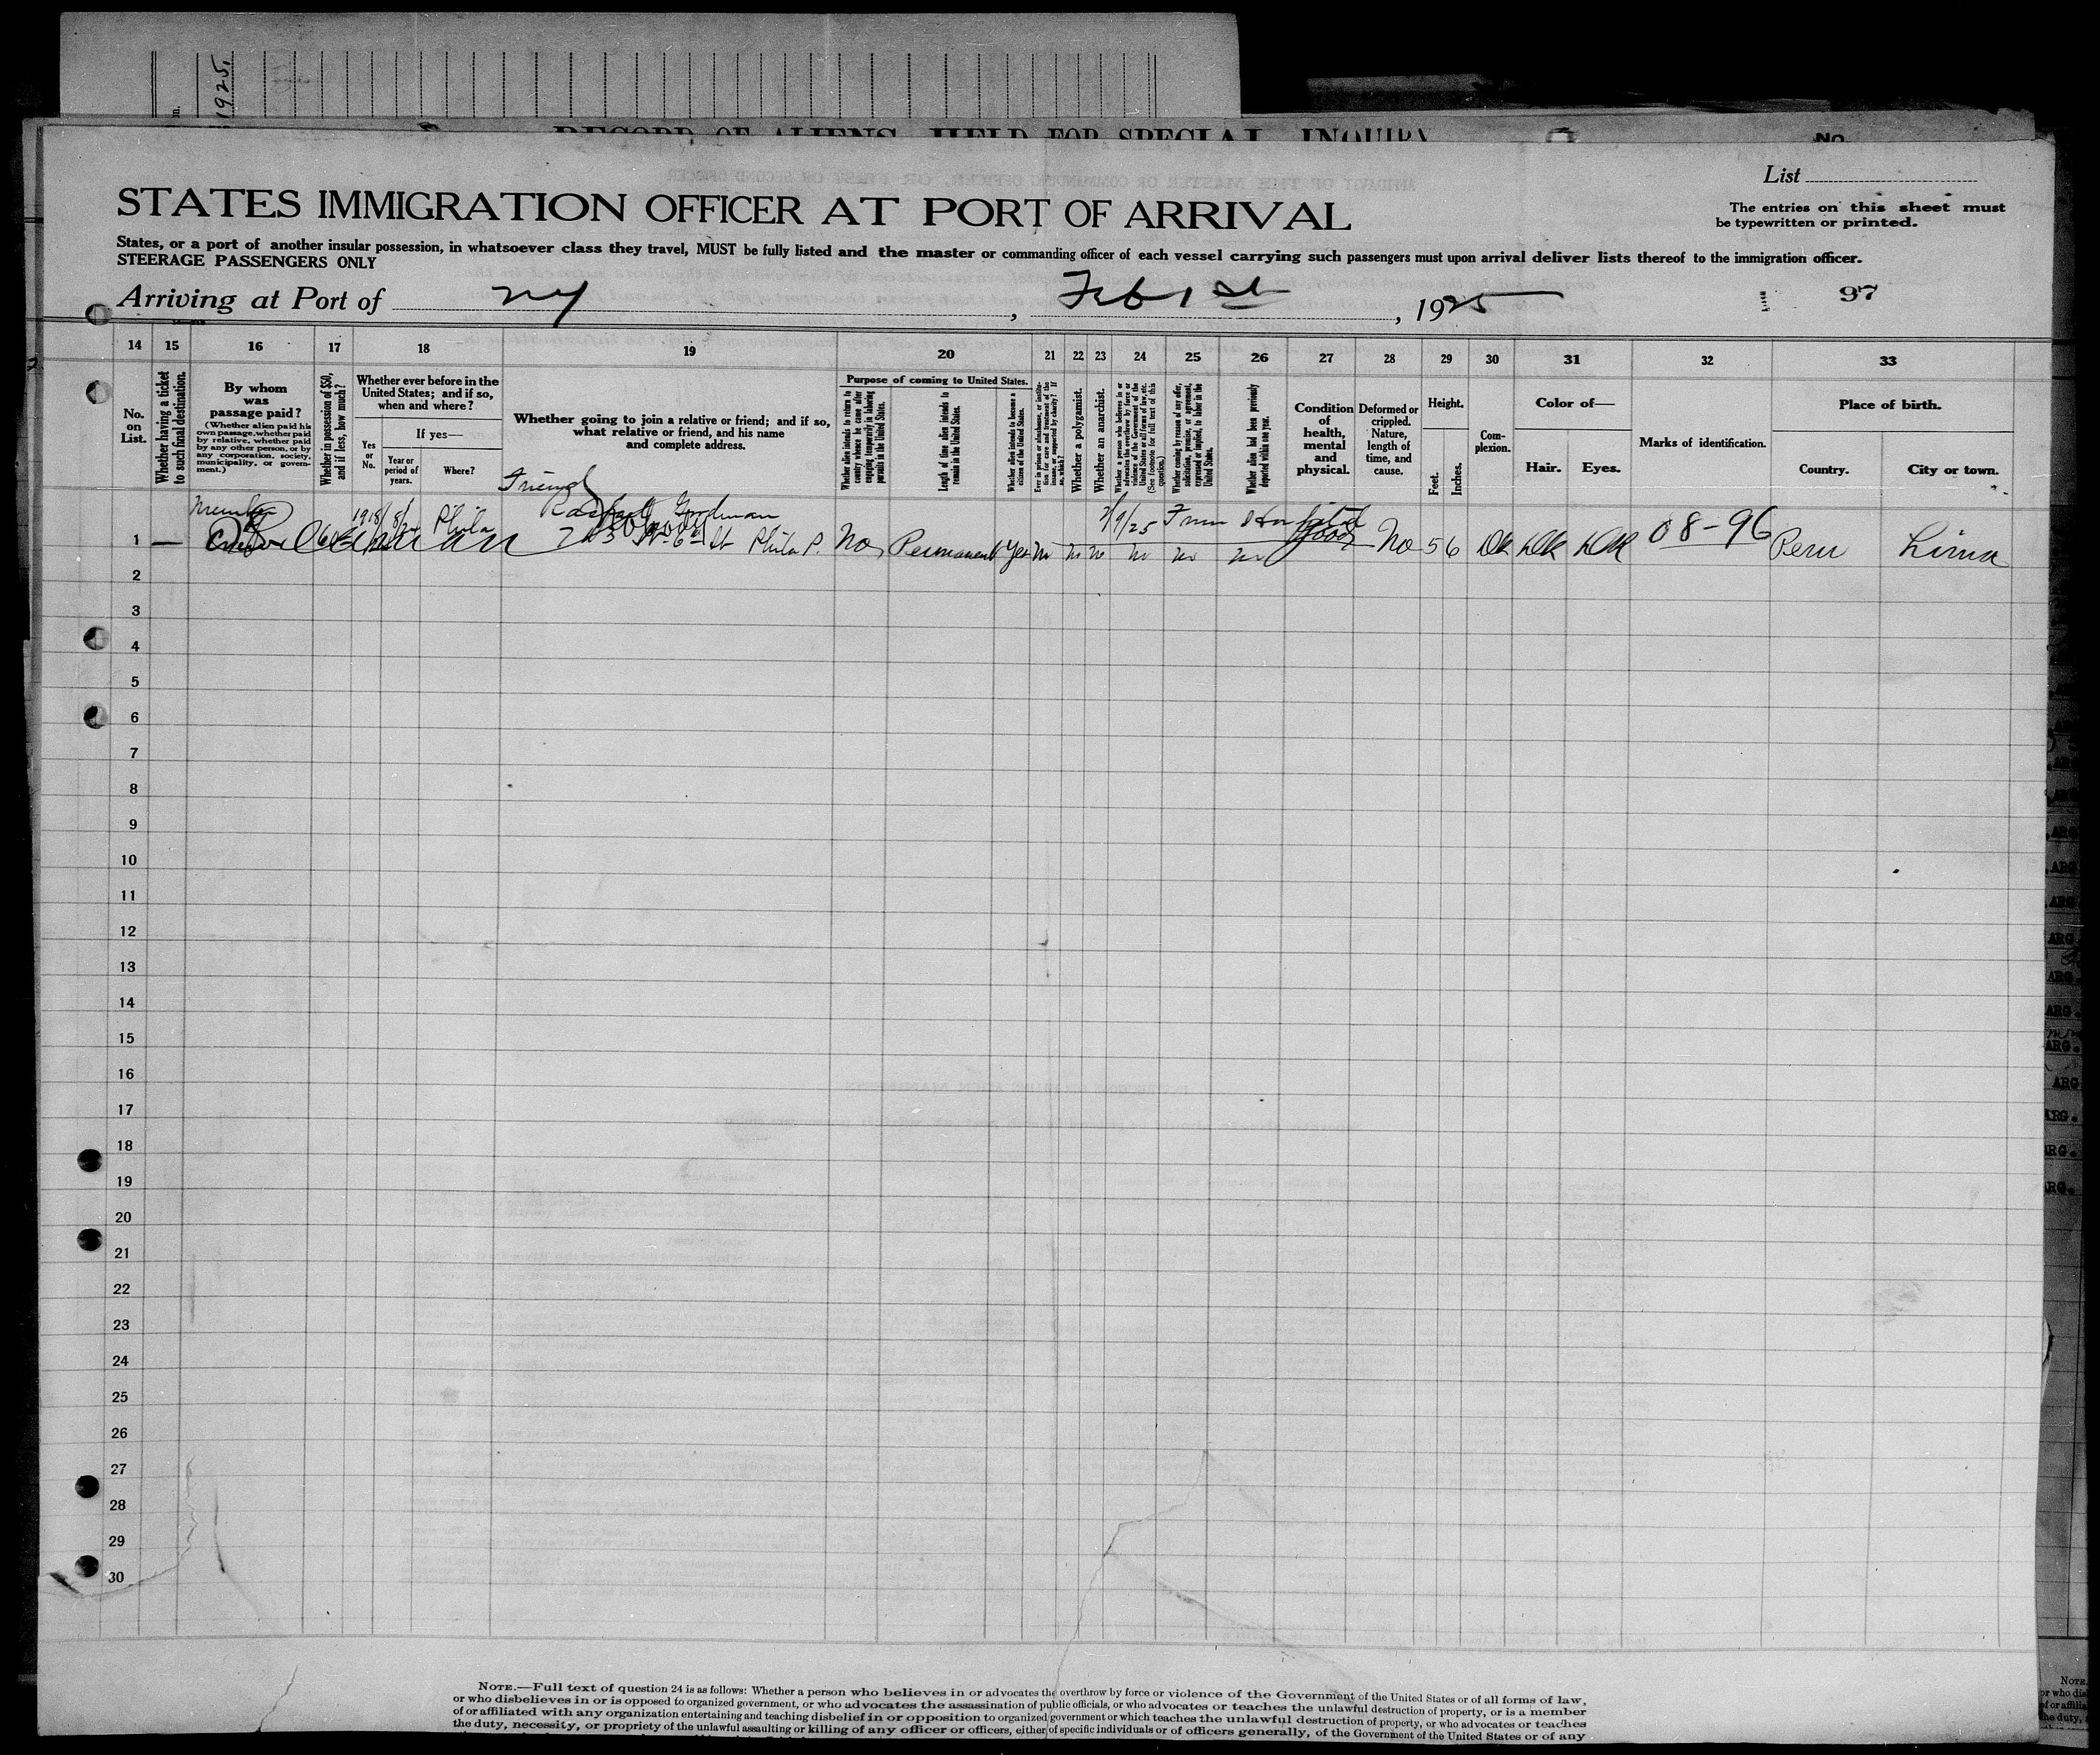 1925.
RECORD OF ALIENS HELD FOR SPECIAL INQUIRY
No.
List
STATES IMMIGRATION OFFICER AT PORT OF ARRIVAL
The entries on this sheet must
be typewritten or printed.
States, or a port of another insular possession, in whatsoever class they travel, MUST be fully listed and the master or commanding officer of each vessel carrying such passengers must upon arrival deliver lists thereof to the immigration officer.
STEERAGE PASSENGERS ONLY
Arriving at Port of NY, Feb 1st, 1925
97
14 15 16 17 18 19 20 21 22 23 24 25 26 27 28 29 30 31 32 33
No. on List.
Whether having a ticket to such final destination.
By whom was passage paid?
(Whether alien paid his own passage, whether paid by relative, whether paid by any other person, or by any corporation, society, municipality, or government.)
Whether in possession of $50, and if less, how much?
Whether ever before in the United States; and if so, when and where?
Yes or No.
If yes—
Year or period of years.
Where?
Whether going to join a relative or friend; and if so, what relative or friend, and his name and complete address.
Purpose of coming to United States.
Whether alien intends to return to country whence he came after engaging temporarily in laboring pursuits in the United States.
Length of time alien intends to remain in the United States.
Whether alien intends to become a citizen of the United States.
Ever in prison or almshouse, or institution for care and treatment of the insane, or supported by charity? If so, which?
Whether a polygamist.
Whether an anarchist.
Whether a person who believes in or advocates the overthrow by force or violence of the Government of the United States or all forms of law, etc. (See footnote for full text of this question.)
Whether coming by reason of any offer, solicitation, promise, or agreement, expressed or implied, to labor in the United States.
Whether alien had been previously deported within one year.
Condition of health, mental and physical.
Deformed or crippled. Nature, length of time, and cause.
Height.
Feet.
Inches.
Complexion.
Color of—
Hair.
Eyes.
Marks of identification.
Place of birth.
Country.
City or town.
Friend
Member 1918 Phila Goodman 2/9/25 From Hospital
1 — St Phila P. No Permanent Yes no no no no no no Good No 5 6 Dk Dk Dk 08-96 Peru Lima
2
3
4
5
6
7
8
9
10
11
12
13
14
15
16
17
18
19
20
21
22
23
24
25
26
27
28
29
30
NOTE.—Full text of question 24 is as follows: Whether a person who believes in or advocates the overthrow by force or violence of the Government of the United States or of all forms of law,
or who disbelieves in or is opposed to organized government, or who advocates the assassination of public officials, or who advocates or teaches the unlawful destruction of property, or is a member
of or affiliated with any organization entertaining and teaching disbelief in or opposition to organized government or which teaches the unlawful destruction of property, or who advocates or teaches
the duty, necessity, or propriety of the unlawful assaulting or killing of any officer or officers, either of specific individuals or of officers generally, of the Government of the United States or of any